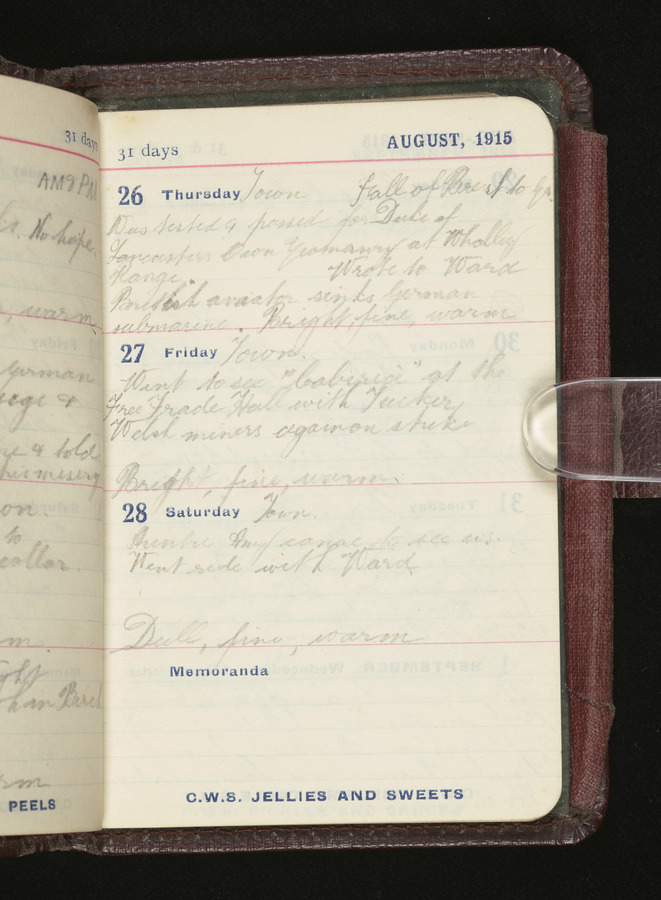 31 days
AM9 PM
No hope.
, warm.
German
& told
misery
on
to
collar.
PEELS
31 days AUGUST, 1915
26 Thursday Town Fall of Brest to Gr.
Was tested & passed for Duke of
Lancasters Own Yeomanry at Whalley
Range. Wrote to Ward
British aviator sinks German
submarine. Bright, fine, warm
27 Friday Town.
Went to see "Cabiria" at the
Free Trade Hall with Tucker
Welsh miners again on strike
Bright, fine, warm.
28 Saturday Town.
Auntie Amy came to see us.
Went ride with Ward
Dull, fine, warm
Memoranda
C.W.S. JELLIES AND SWEETS